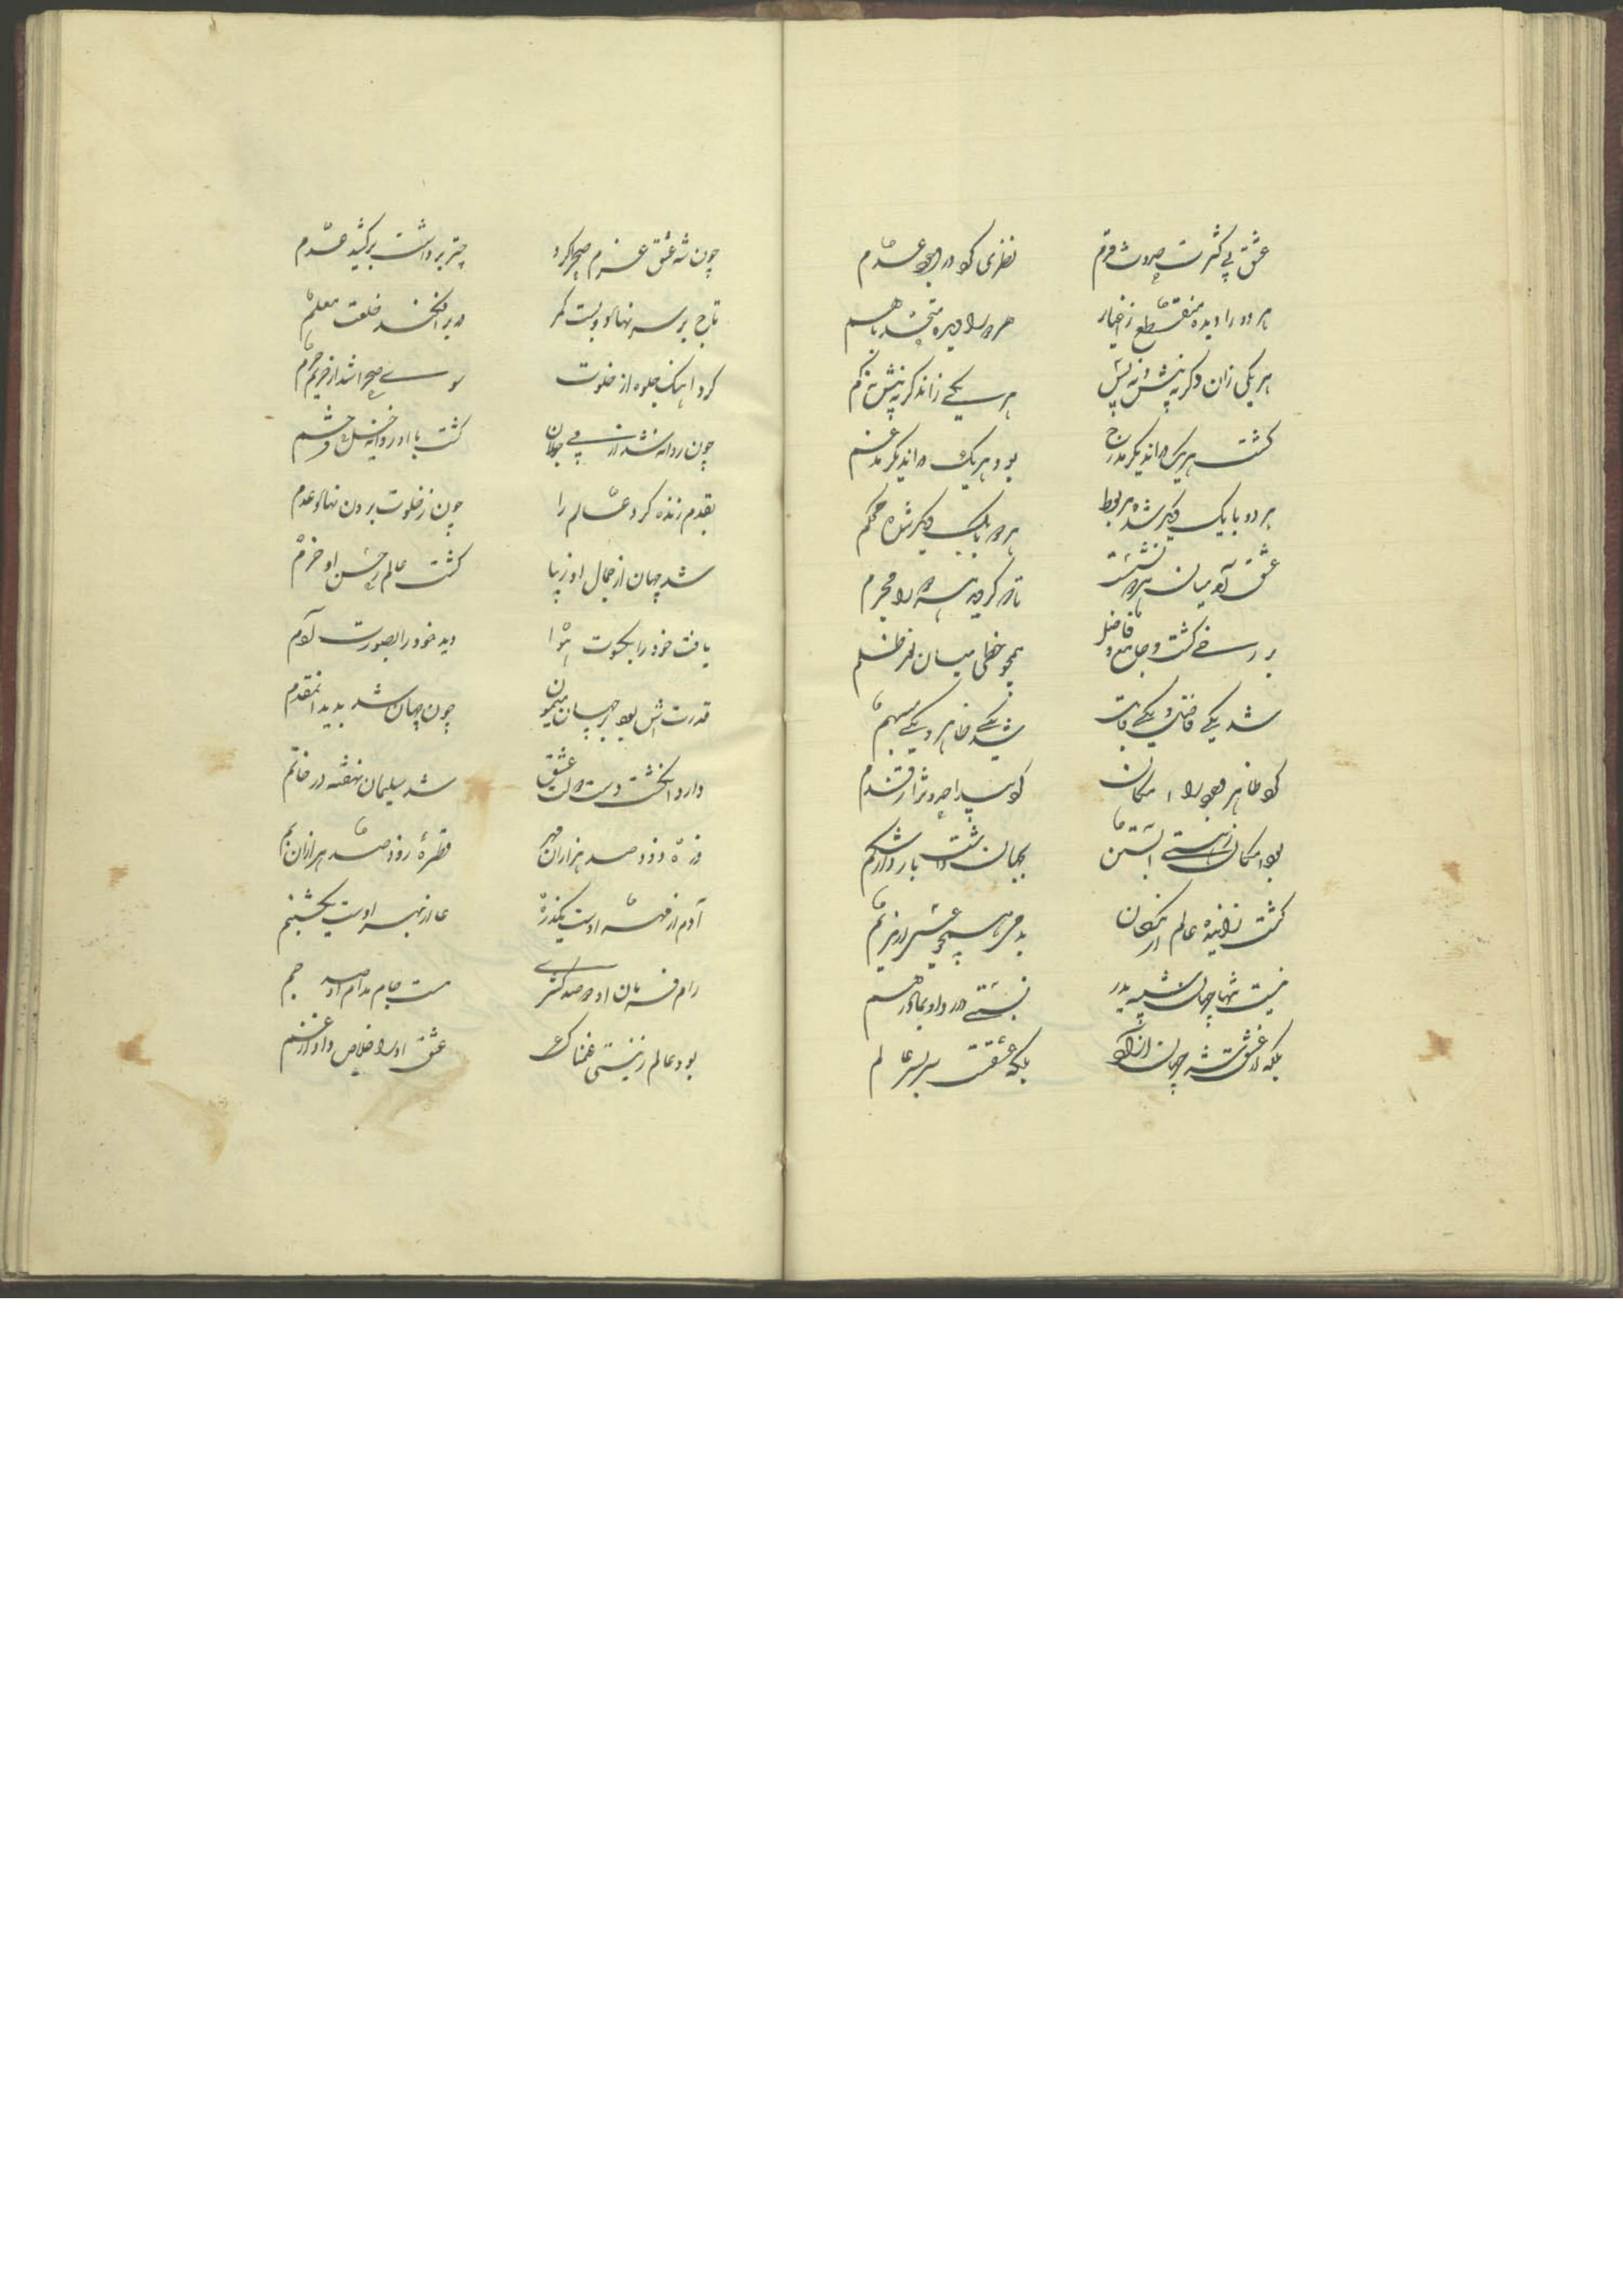 عشق بی کثرت حدوث و قدم نظری کرد در وجود و عدم
هر دو را دیده منقطع ز اغیار هر دو را دیده متحد با هم
هر یکی زان دگر نه پیش و نه پس هر یکی زاندگر نه بیش نه کم
گشت هریک در اندیگر مدرج بود هر یک در اندیگر مدغم
هر دو با یک دگر شده مربوط هر دو با یک دگر شده محکم
عشق آمد میان هر دو نشست تا که گردید هر دو را محرم
برزخی گشت جامع و فاصل همچو خطی میان نور و ظلم
شد یکی فاضل و یکی قابل شد یکی ظاهر و یکی مبهم
کرد ظاهر وجود را امکان کرد پیدا حدوث را ز قدم
بود امکان ز هستی آبستن بجهان داشت بار در اشکم
گشت زاینده عالم از امکان بد جهان همچو عیسی از مریم
نیست تنها جهان شبیه پدر نسبتی دارد او بمادر هم
بلکه از عشق شد جهان آزاد بلکه عشقست سر بسر عالم
چون شه عشق عزم صحرا کرد چتر برداشت برکشید علم
تاج بر سر نهاد و بست کمر در بر افکند خلعت معلم
کرد آهنگ جلوه از خلوت سوی صحرا شد از حریم حرم
چون روانه شد از پی جولان گشت با او روانه خیل و حشم
بقدم زنده کرد عالم را چون ز خلوت برون نهاد قدم
شد جهان از جمال او زیبا گشت عالم ز حسن او خرم
یافت خود را بکسوت حوا دید خود را بصورت آدم
قدرتش بود بر جهان میمون چون جهان شد پدید از آن مقدم
دارد انگشت دست دولت عشق شد سلیمان نهفته در خاتم
ذره ازو دو صد هزاران مهر قطره ازو دو صد هزاران یم
آدم از مهر اوست یکذره عالم از بهر اوست یک شبنم
رام فرمان او دو صد کسری مست جام مدام او صد جم
بود عالم ز نیستی غمناک عشق او را خلاص داد از غم